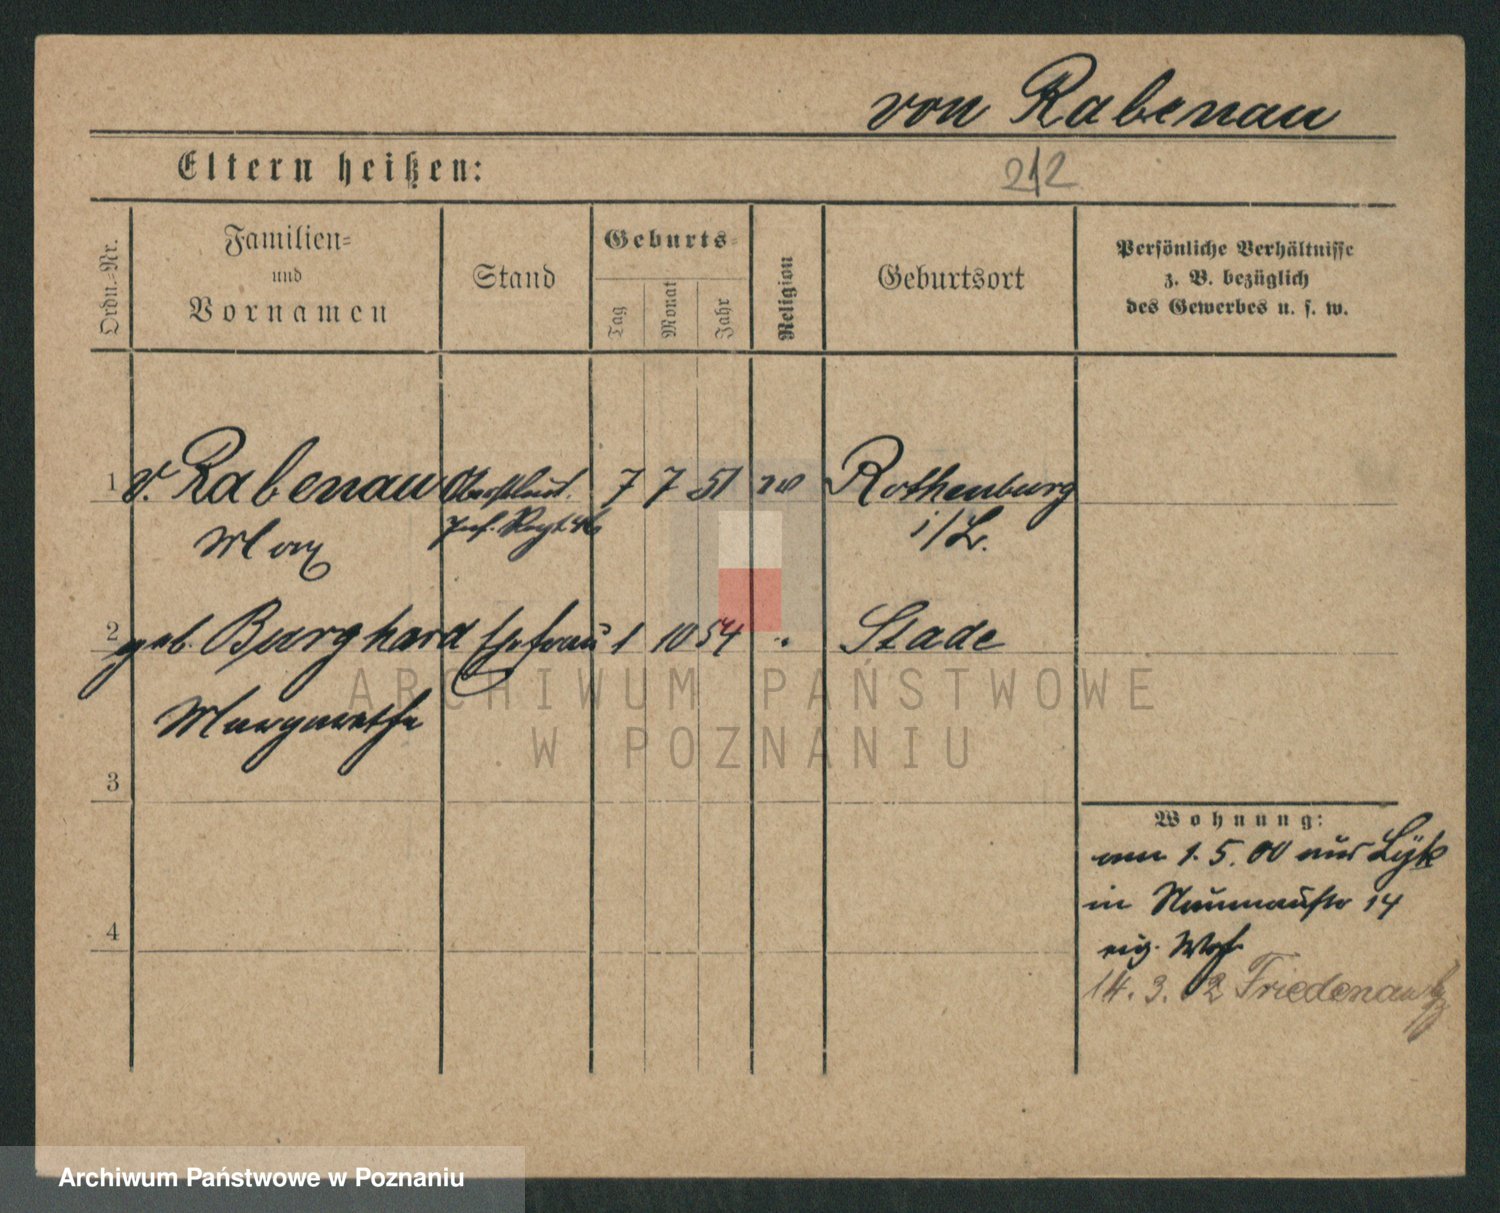 von Rabenau
Eltern heißen:
212
Ordn.-Nr.
Familien-
und
Vornamen
Stand
Geburts-
Tag
Monat
Jahr
Religion
Geburtsort
Persönliche Verhältnisse
z. B. bezüglich
des Gewerbes u. s. w.
1 v. Rabenau Oberstleut. 7 7 51 ev Rothenburg
Max Inf. Regt. 46 i/L.
2 geb. Burghard Ehefrau 1 10 54 " Stade
Margarethe
ARCHIWUM PAŃSTWOWE
W POZNANIU
3
Wohnung:
am 1. 5. 00 aus Lyk
in Naumannstr 14
eig. Woh
4
14. 3. 02 Friedenau
Archiwum Państwowe w Poznaniu